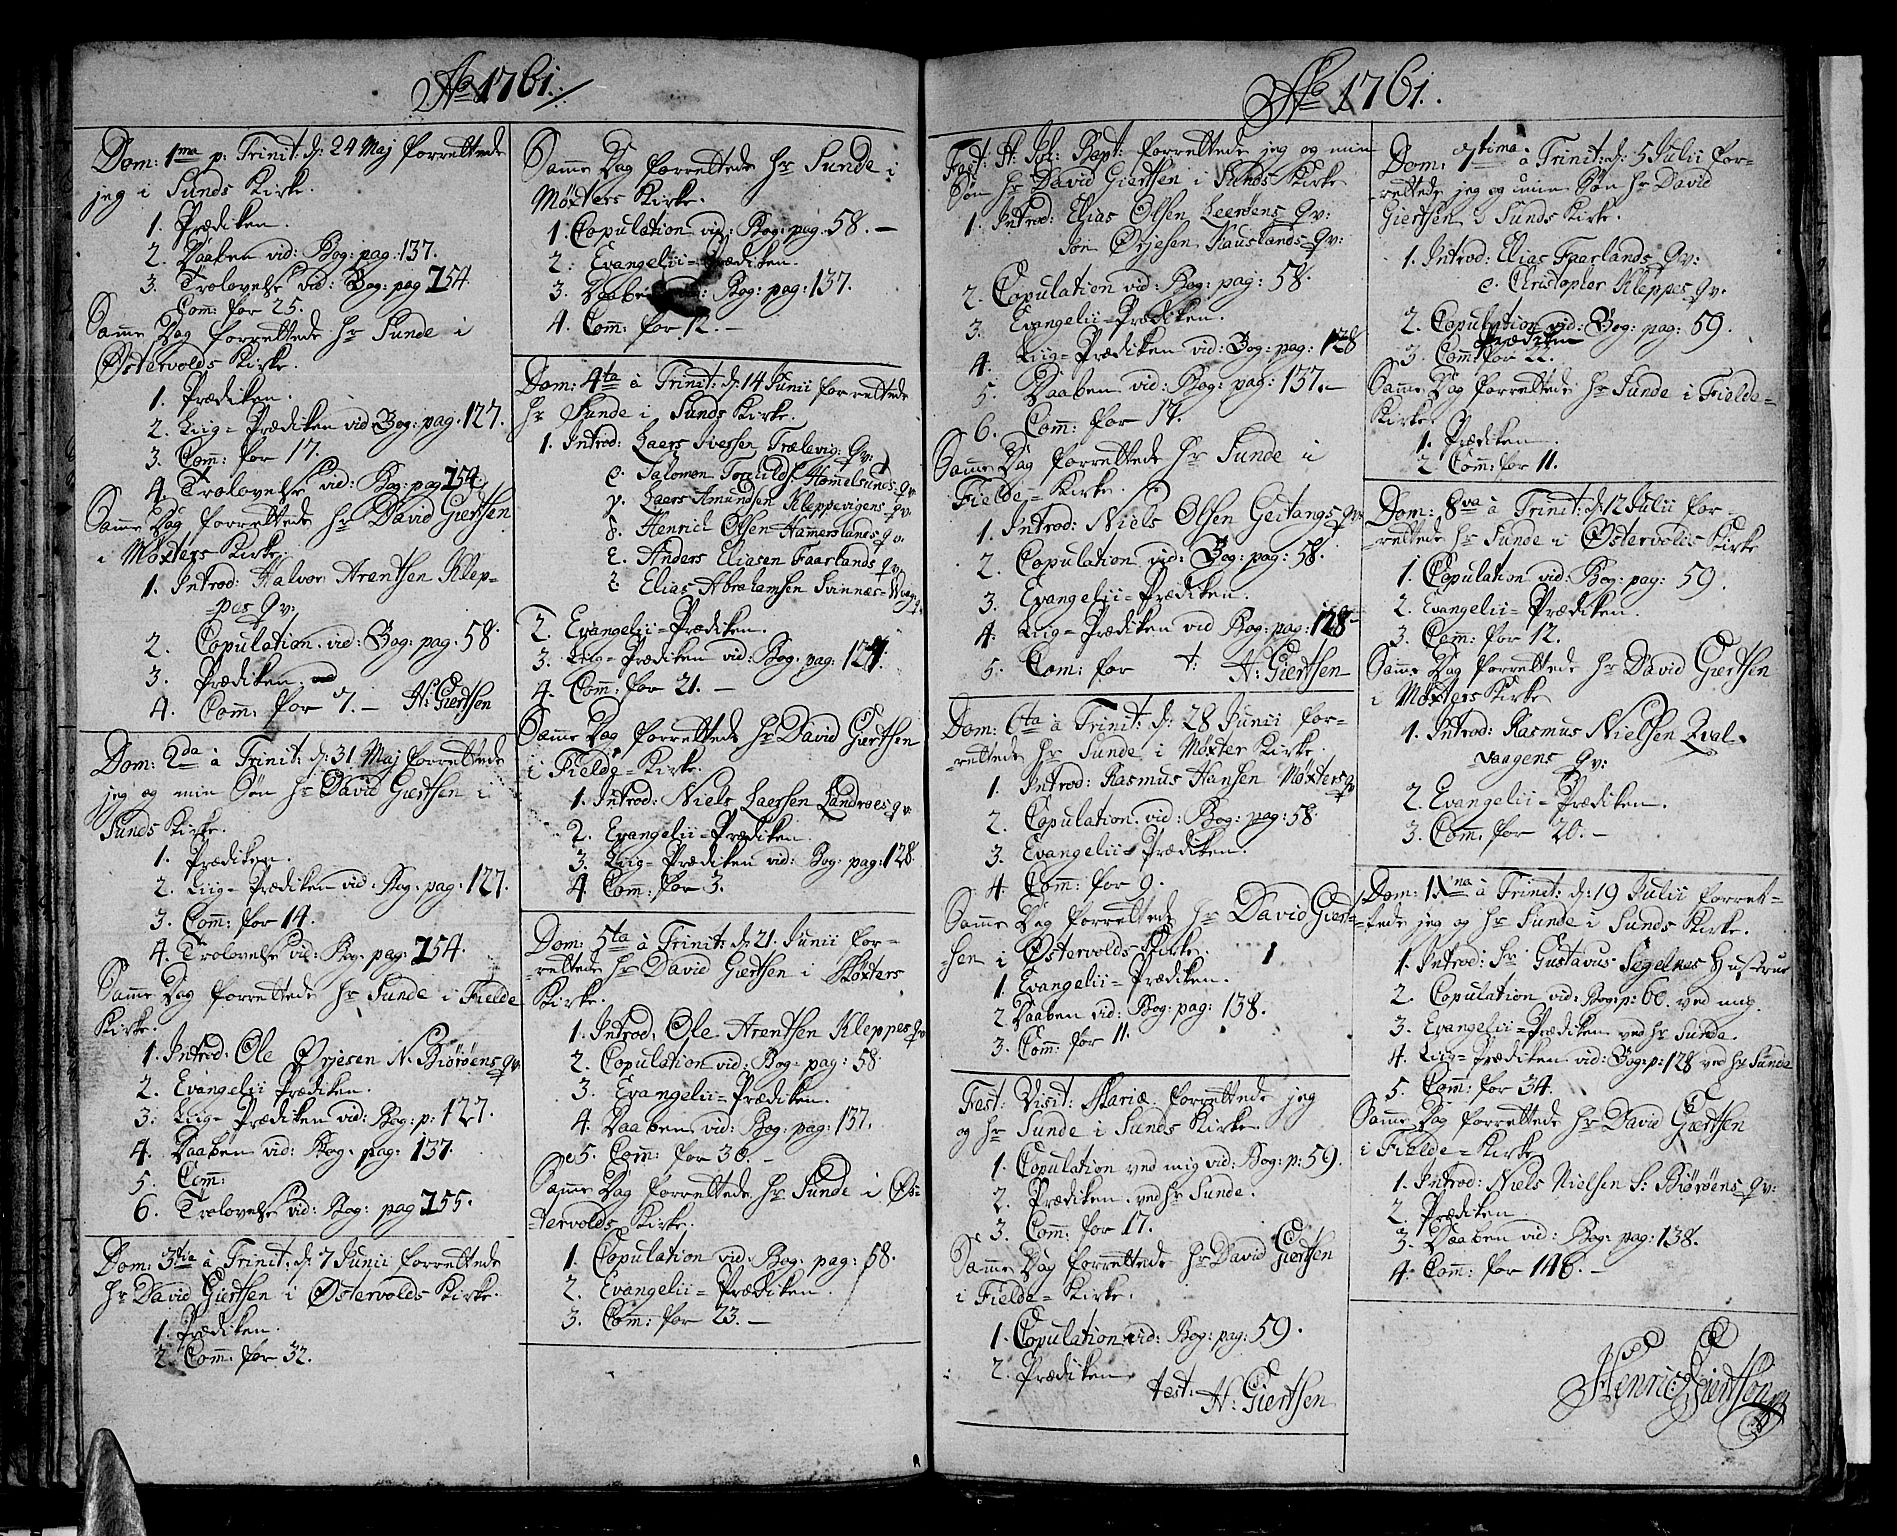 Ao 1761.
Dom: 1ma p: Trinit: d: 24 Maj forrettede
jeg i Sunds Kirke.
1. Prædiken.
2. Daaben vid: Bog: pag: 137.
3. Trolovelse vid: Bog: pag 154
Com: for 25.
Same Dag forrettede Hr Sunde i
Østervolds Kirke.
1. Prædiken.
2. Liig-Prædiken vid: Bog: pag: 127.
3. Com: for 17.
4. Trolovelse vid: Bog: pag 154
Same Dag forrettede Hr David Giertsen
i Møxters Kirke.
1. Introd: Halvor Arentsen Klep-
pes Qv:
2. Copulation vid: Bog: pag: 58.
3. Prædiken.
4. Com: for 7. - H: Giertsen
Dom: 2da à Trinit: d: 31. Maj forrettede
jeg og min Søn Hr David Giertsen i
Sunds Kirke.
1. Prædiken.
2. Liig-Prædiken vid: Bog: pag: 127.
3. Com: for 14.
4. Trolovelse vid: Bog: pag: 154.
Same Dag forrettede Hr Sunde i Fielde
Kirke.
1. Introd: Ole Ørjesen N. Biørøens Qv
2. Evangelii Prædiken.
3. Liig-Prædiken vid: Bog: p: 127.
4. Daaben vid: Bog: pag: 137.
5. Com:
6. Trolovelse vid: Bog: pag 155.
Dom: 3tia à Trinit: d: 7 Junii forrettede
Hr David Giertsen i Østervolds Kirke.
1. Prædiken.
2. Com: for 32.
Same Dag forrettede Hr Sunde i
Møxters Kirke.
1. Copulation vid: Bog: pag: 58. -
2. Evangelii-Prædiken.
3. Daaben vid: Bog: pag: 137.
4. Com: for 12. -
Dom: 4ta à Trinit: d: 14 Junii forrettede
Hr Sunde i Sunds Kirke.
1. Introd: Laers Iversen Trælevig: Qv:
Salomon Hamelsunds Qv
Laers Amundsen Kleppevigens Qv.
Henrich Olsen Hammerslands Qv.
Anders Eliasen Faarlands Qv.
Elias Abrahamsen Svinnæs-
2. Evangelii-Prædiken.
3. Liig-Prædiken vid: Bog: pag: 127.
4. Com: for 21. -
Same Dag forrettede Hr David Giertsen
i Fielde-Kirke.
1. Introd: Niels Laersen Landroes Qv:
2. Evangelii-Prædiken.
3. Liig-Prædiken vid: Bog: pag: 128.
4. Com: for 3.
Dom: 5ta à Trinit: d: 21. Junii for-
-rettede Hr David Giertsen i Møxters
Kirke.
1. Introd: Ole Arentsen Kleppes Qv
2. Copulation vid: Bog: pag: 58
3. Evangelii-Prædiken.
4. Daaben vid: Bog: pag: 137.
5. Com: for 30. -
Same Dag forrettede Hr Sunde i Øs-
-tervolds Kirke.
1. Copulation vid: Bog: pag: 58.
2. Evangelii-Prædiken.
3. Com: for 23. -
Ao 1761.
Fest: St. Joh: Bapt: forrettede jeg og min
Søn Hr David Giertsen i Sunds Kirke
1. Introd: Elias Olsen Leerøens Qv:
Jon Ørjesen Kauslands Qv:
2. Copulation vid: Bog: pag: 58.
3. Evangelii-Prædiken.
4. Liig-Prædiken vid: Bog: pag: 128
5. Daaben vid: Bog: pag: 137. -
6. Com: for 17.
Same Dag forrettede Hr Sunde i
Fielde-Kirke.
1. Introd: Niels Olsen Geitangs Qv
2. Copulation vid: Bog: pag: 58.
3. Evangelii-Prædiken.
4. Liig-Prædiken vid Bog: pag: 128 -
5. Com: for H: Giertsen
Dom: 6ta à Trinit: d: 28 Junii for-
-rettede Hr Sunde i Møxter Kirke.
1. Introd: Rasmus Hansen Møxters Qv
2. Copulation vid: Bog: pag: 58.
3. Evangelii-Prædiken.
4. Com: for 9.
Same Dag forrettede Hr David Giert-
-sen i Østervolds Kirke. 1
1. Evangelii-Prædiken.
2. Daaben vid: Bog: pag: 138.
3. Com: for 11.
Fest: Visit: Mariæ forrettede jeg
og Hr Sunde i Sunds Kirke
1. Copulation ved mig vid: Bog: p: 59.
2. Prædiken ved Hr Sunde.
3. Com: for 17.
Same Dag forrettede Hr David Giertsen
i Fielde-Kirke.
1. Copulation vid: Bog: pag: 59.
2. Prædiken.
test: H: Giertsen
Dom: 7tima à Trinit: d: 5 Julii for-
-rettede jeg og min Søn Hr David
Giertsen i Sunds Kirke.
1. Introd: Elias Faarlands Qv:
Christopher Kleppes Qv:
2. Copulation vid: Bog: pag: 59.
Prædiken
3. Com: for 22.
Same Dag forrettede Hr Sunde i Fielde-
Kirke.
1. Prædiken.
2. Com: for 11.
Dom: 8va à Trinit: d: 12 Julii for-
-rettede Hr Sunde i Østervolds Kirke
1. Copulation vid: Bog: pag: 59.
2. Evangelii-Prædiken.
3. Com: for 12.
Same Dag forrettede Hr David Giertsen
i Møxters Kirke
1. Introd: Rasmus Nielsen Qval-
vaagens Qv:
2. Evangelii-Prædiken.
3. Com: for 20. -
Dom: IXna à Trinit: d: 19 Julii forret-
-tede jeg og Hr Sunde i Sunds Kirke.
1. Introd: Hr Gustavus Segelnes Hustrue
2. Copulation vid: Bog: p: 60. ved mig.
3. Evangelii-Prædiken ved Hr Sunde.
4. Liig-Prædiken vid: Bog: p: 128 ved Hr Sunde
5. Com: for 34.
Same Dag forrettede Hr David Giertsen
i Fielde-Kirke
1. Introd: Niels Nielsen S: Biørøens Qv:
2. Prædiken.
3. Daaben vid: Bog: pag: 138.
4. Com: for 146. -
Henric Giertsen